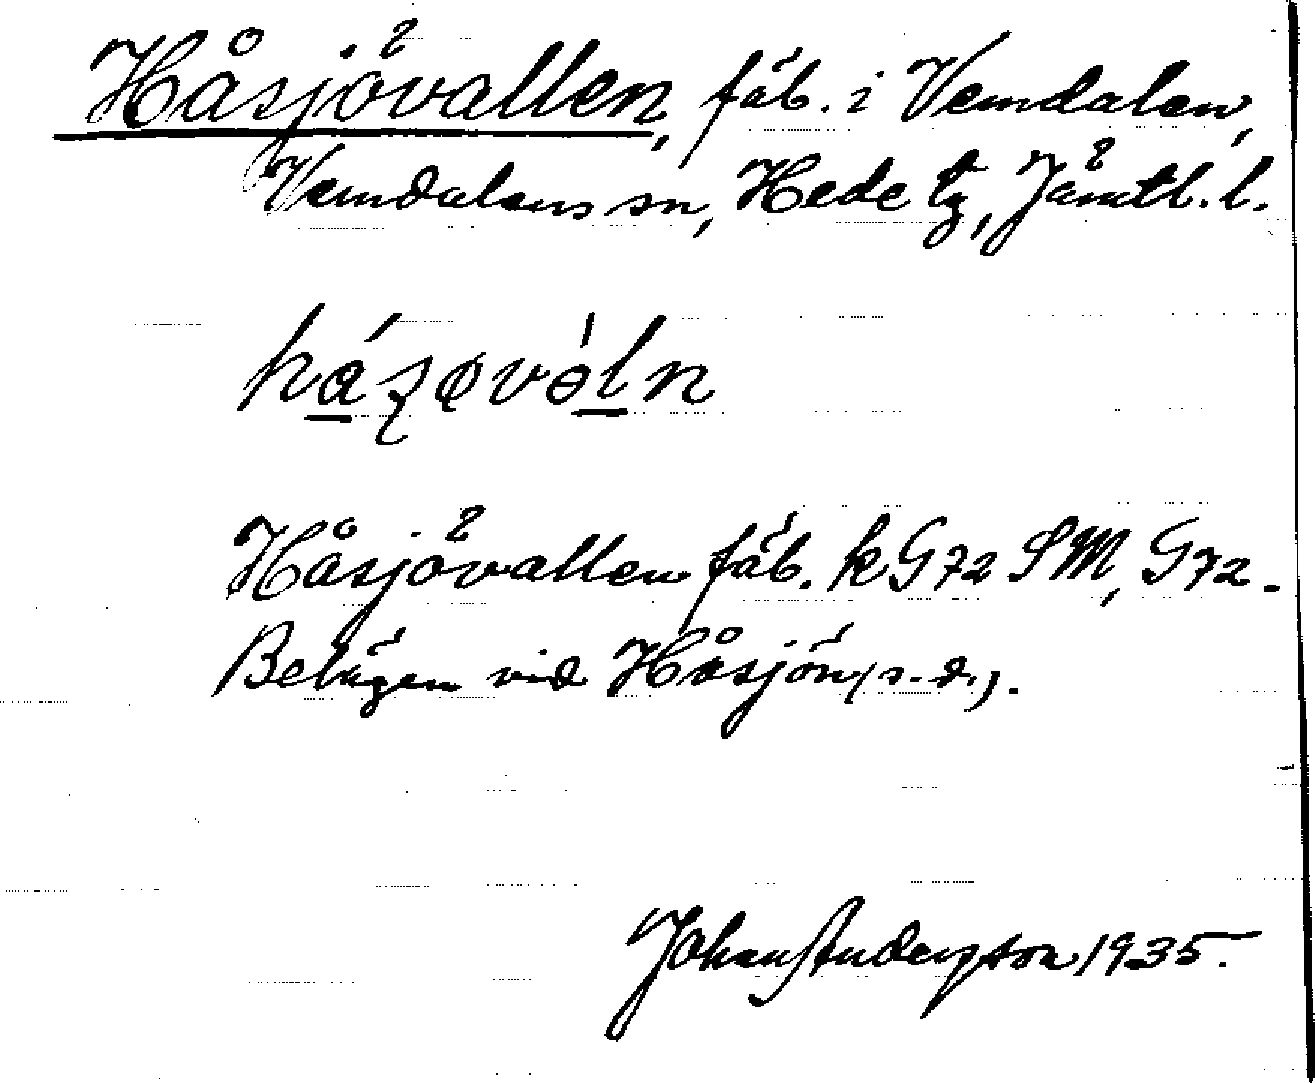 Håsjövallen, fäb. i Vemdalen,
Vemdalens sn, Hede tg, Jämtl. l.
Håsjövallen fäb. k G72 SM, G72.
Belägen vid Håsjön (s.d.).
Johan Anderson 1935.